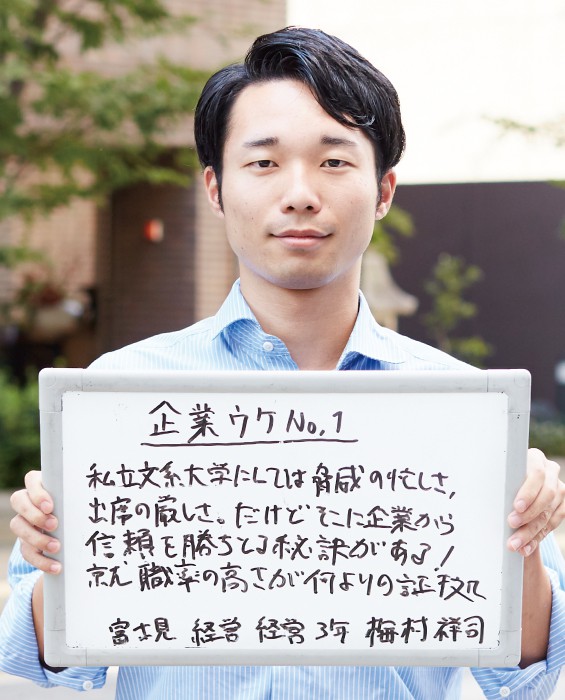 企業ウケNo.1
私立文系大学にしては脅威の忙しさ,
出席の厳しさ。だけどそこに企業から
信頼を勝ちとる秘訣がある!
就職率の高さが何よりの証拠
富士見 経営 経営3年 梅村祥司